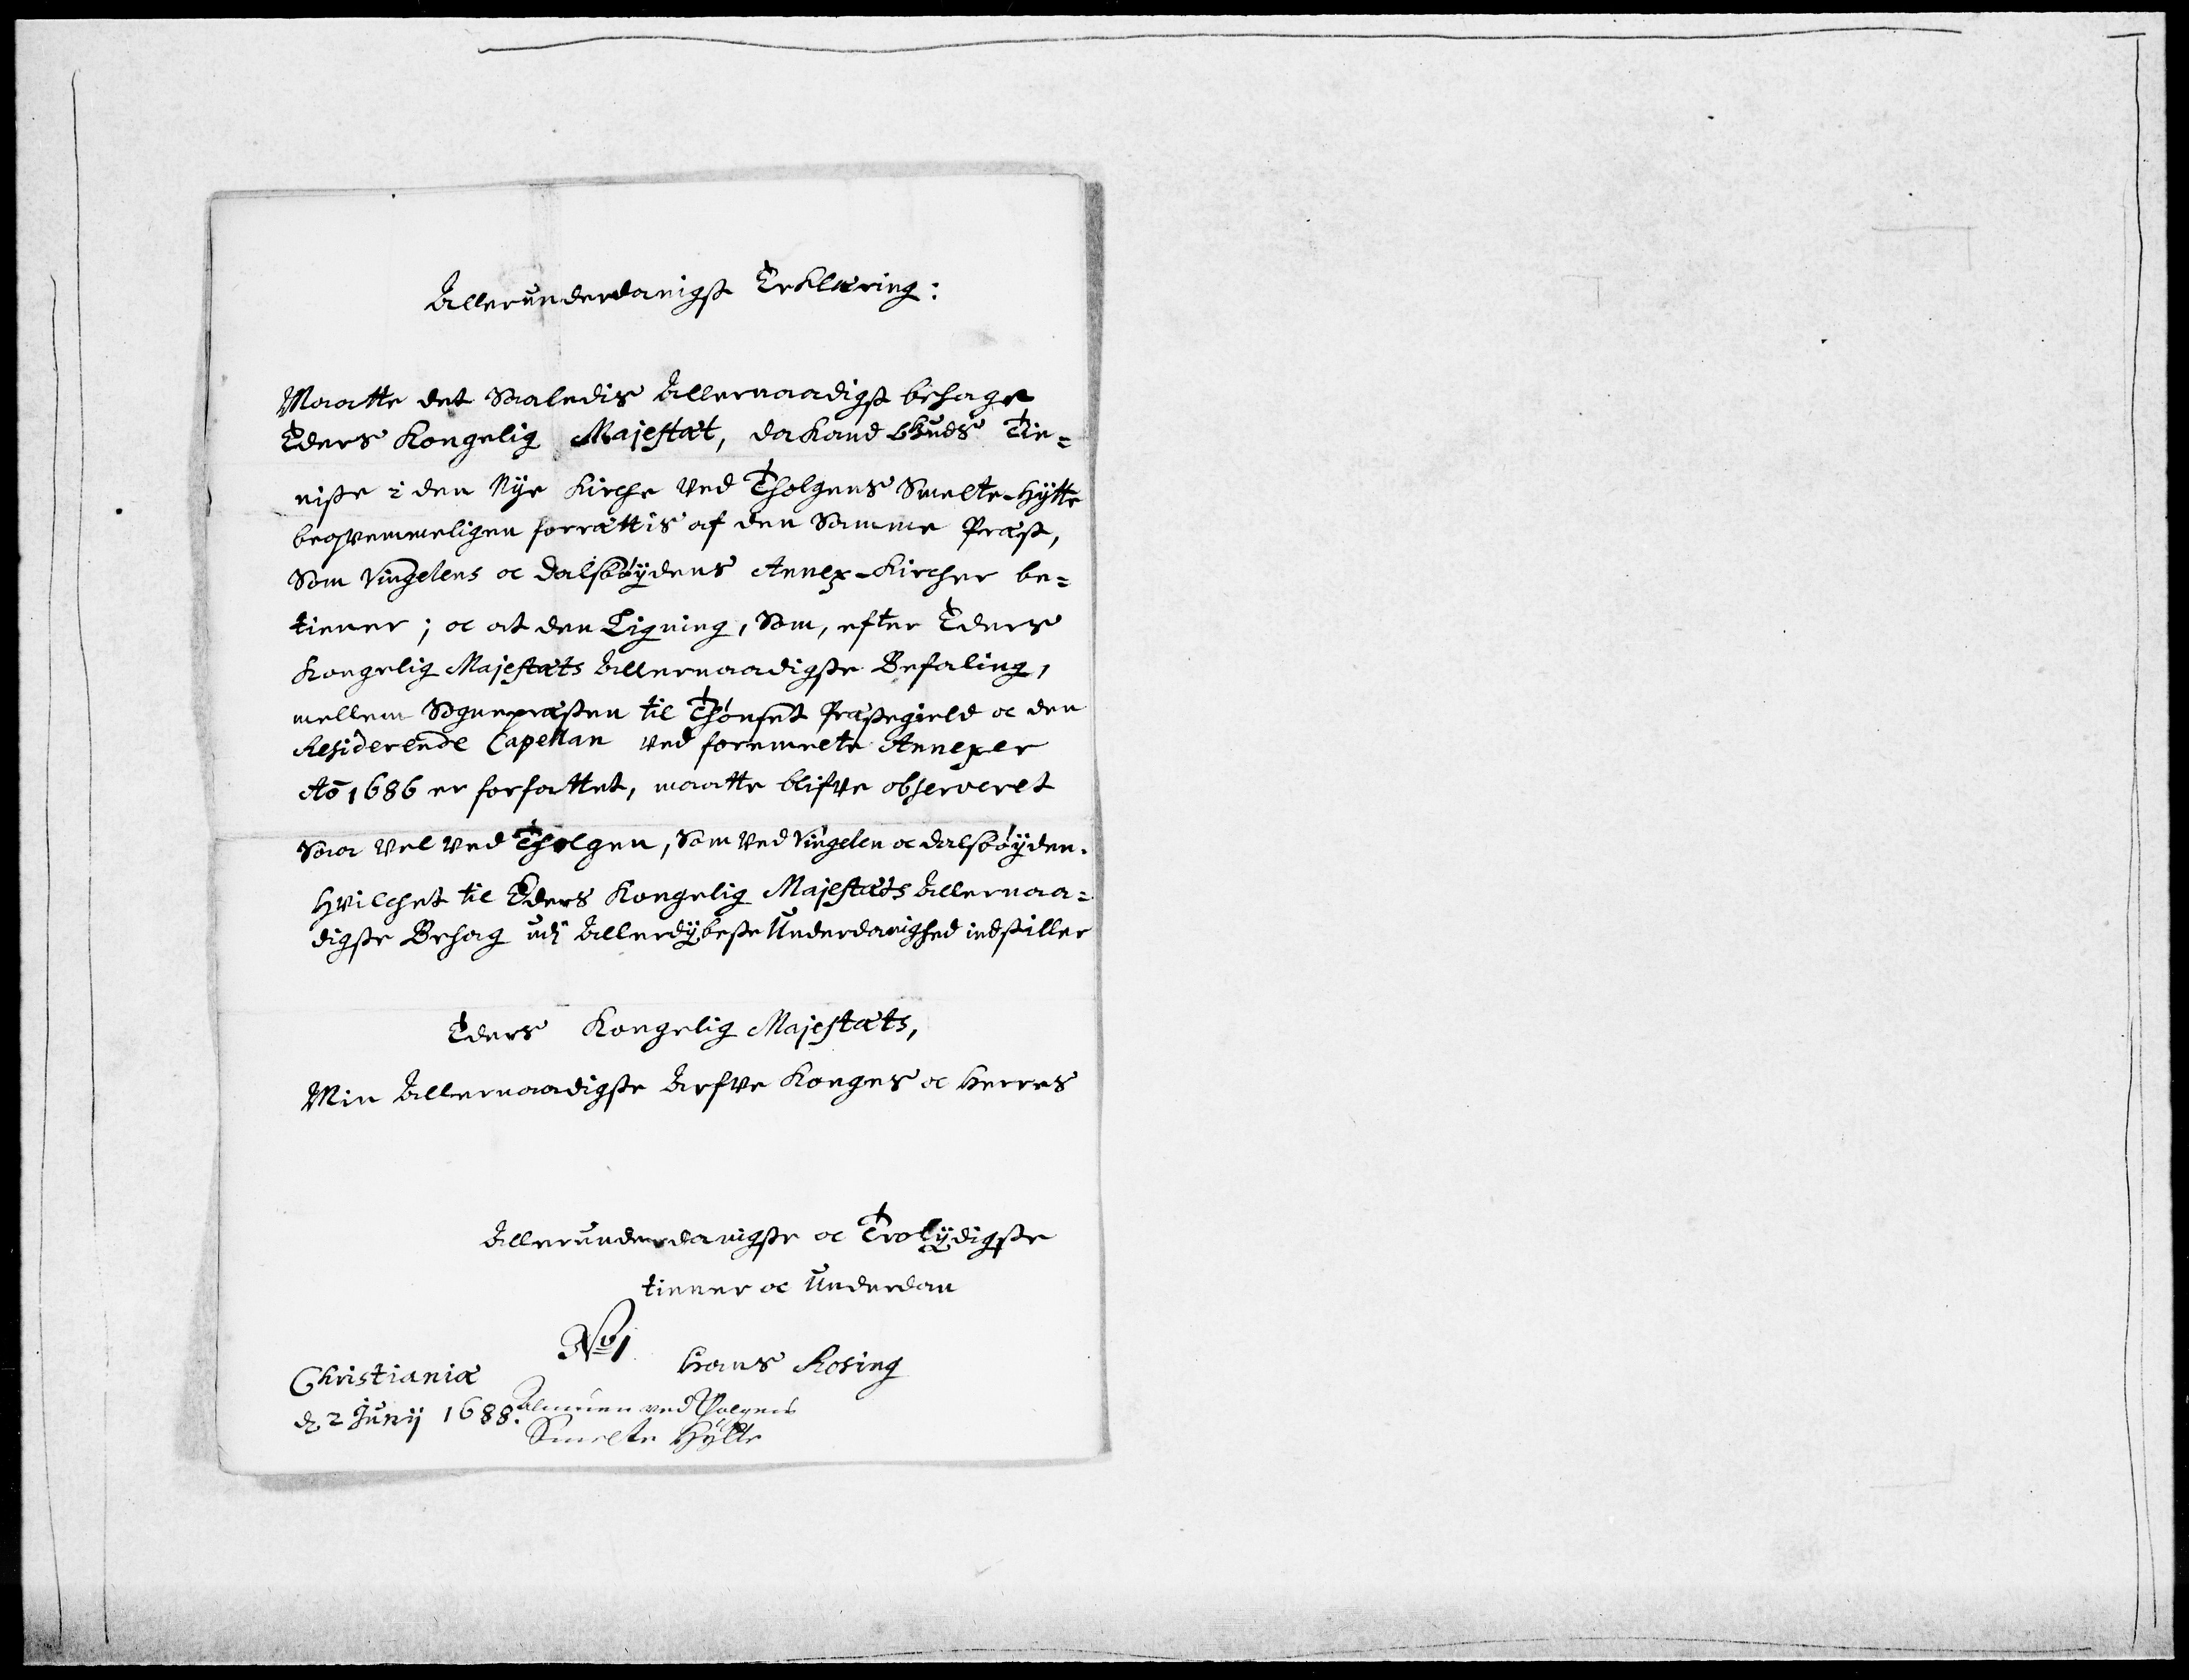 Allerunderdanigst Erklæring:
Maatte det Saaledis Allernaadigst behage
Eders Kongelig Majestæt, da kand Guds Tie=
niste i den Nye Kirche ved Tholgens Smelte-Hytte
beqvemmeligen forrættis af den Samme Præst,
Som Vingelens oc Dalsbøÿdens Annex-Kircher be=
tiener; oc at den Ligning, Som, efter Eders
Kongelig Majestæts Allernaadigste Befaling,
mellem Sognepræsten til Thønset Præstegield oc den
Residerende Capellan ved foremelte Annexer
Ao 1686 er forfattet, maatte blifve observeret
Saa vel ved Tholgen, Som ved Vingelen oc Dalsbøÿden.
Hvilchet til Eders Kongelig Majestæts Allernaa=
digste Behag udj Allerdÿbeste Underdanighed indstiller
Eders Kongelig Majestæts,
Min Allernaadigste Arfve Konges oc Herres
Allerunderdanigste oc Trolÿdigste
tiener oc Underdan
No 1
Hans Rosing
Christianiæ
d. 2 Junij 1688.
Almuen ved Tholgens
Smelte Hytte